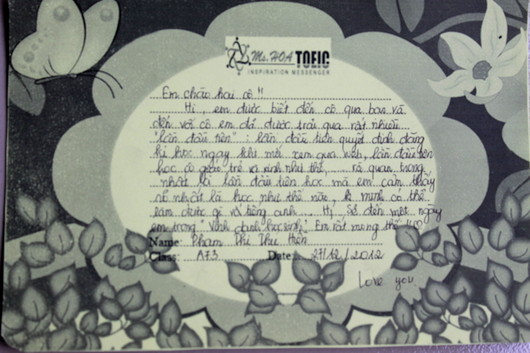 Ms. HOA TOEIC
INSPIRATION MESSENGER
Em chào hai cô !!
Hi, em được biết đến cô qua bạn và
đến với cô em đã được trải qua rất nhiều
"lần đầu tiên" : lần đầu tiên quyết định đăng
kí học ngay khi mà xem qua web, lần đầu tiên
học cô giáo trẻ và xinh như thế, ... và quan trọng
nhất là lần đầu tiên học mà em cảm thấy
rõ nhất là học như thế nào, là mình có thể
làm được gì với tiếng anh... Hi, sẽ đến một ngày
em trong "vinh danh học sinh" Em rất mong thế
Name: Phạm Thị Thu Hiền
Class: A73 Date: 27/12/2012
Love you